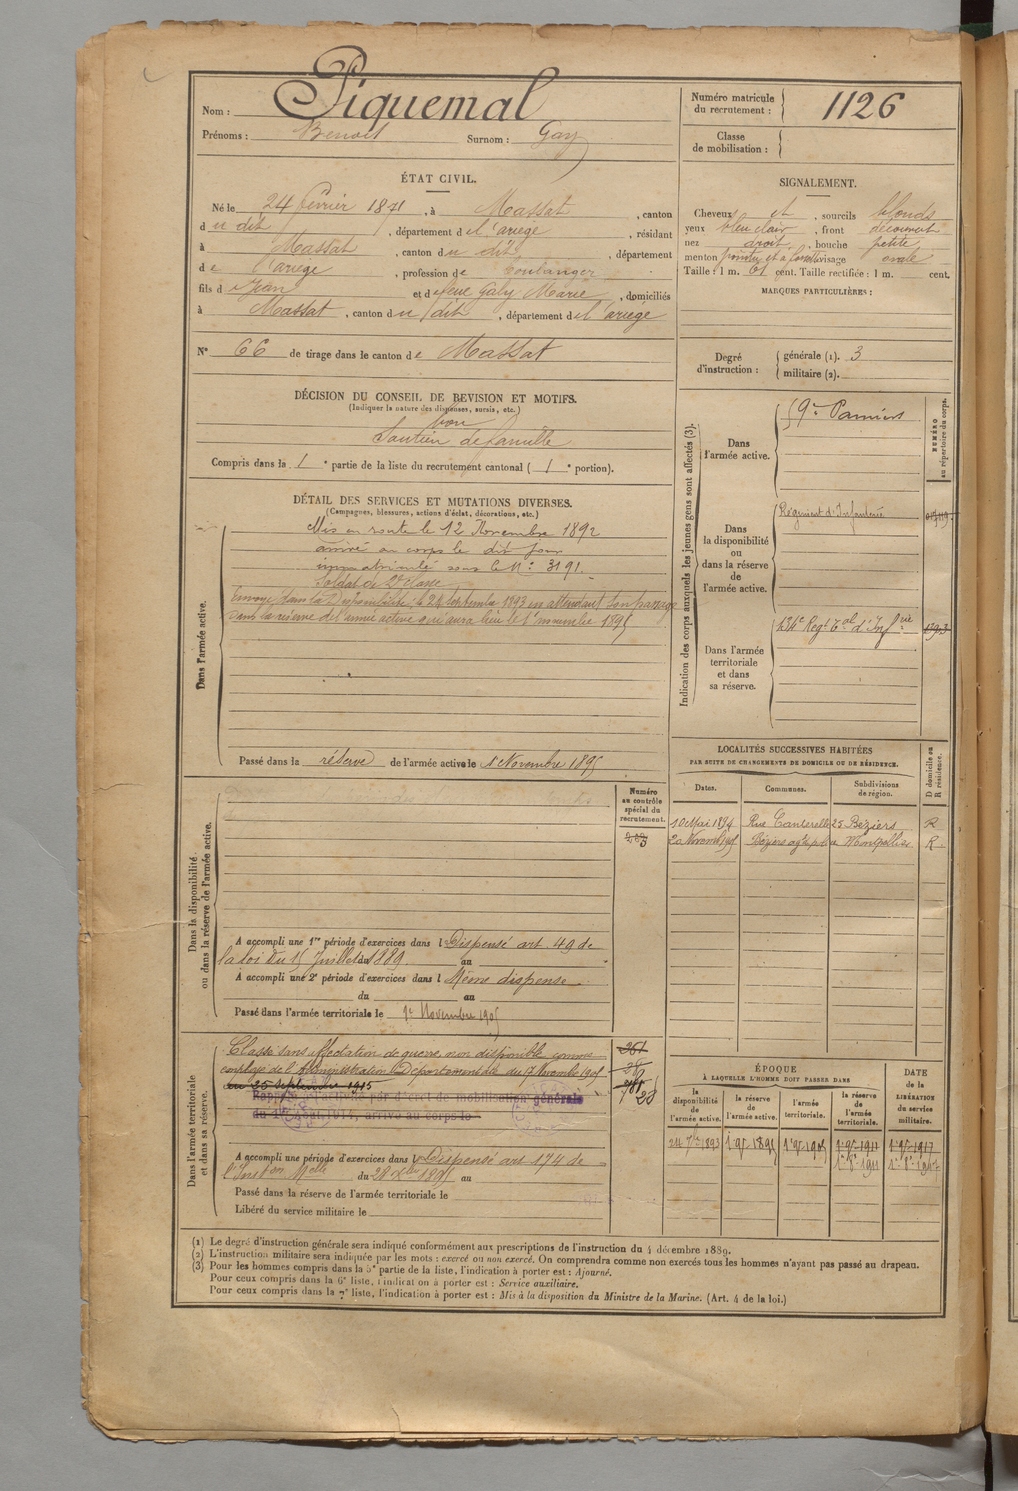 Nom : Piquemal
Prénoms : Benoit Surnom : Gay
Numéro matricule du recrutement : 1126
Classe de mobilisation :
ÉTAT CIVIL.
Né le 24 février 1871, à Massat, canton
du dit, département de l'ariège, résidant
à Massat, canton du dit, département
de l'ariège, profession de boulanger
fils de Jean et de feue Galy Marie, domiciliés
à Massat, canton du dit, département de l'ariège
N° 66 de tirage dans le canton de Massat
SIGNALEMENT.
Cheveux et, sourcils blonds
yeux bleu clair, front découvert
nez droit, bouche petite
menton pointu et à fossette visage ovale
Taille : 1 m. 61 cent. Taille rectifiée : 1 m. cent.
MARQUES PARTICULIÈRES :
Degré d'instruction : générale (1). 3
militaire (2).
DÉCISION DU CONSEIL DE REVISION ET MOTIFS.
(Indiquer la nature des dispenses, sursis, etc.)
bon
Soutien de famille
Compris dans la 1e partie de la liste du recrutement cantonal (1e portion).
DÉTAIL DES SERVICES ET MUTATIONS DIVERSES.
(Campagnes, blessures, actions d'éclat, décorations, etc.)
Dans l'armée active.
Mis en route le 12 Novembre 1892
arrivé au corps le dit jour
immatriculé sous le N° 3191.
Soldat de 2e classe
Envoyé dans la Disponibilité, le 24 septembre 1893 en attendant son passage
dans la réserve de l'armée active qui aura lieu le 1 novembre 1895
Passé dans la réserve de l'armée active le 1 Novembre 1895
Indication des corps auxquels les jeunes gens sont affectés (3).
NUMÉRO au répertoire du corps.
Dans l'armée active.
59e Pamiers
Dans la disponibilité ou dans la réserve de l'armée active.
Régiment d'Infanterie
Dans l'armée territoriale et dans sa réserve.
134e Regt Tal d'Infie
LOCALITÉS SUCCESSIVES HABITÉES
PAR SUITE DE CHANGEMENTS DE DOMICILE OU DE RÉSIDENCE.
Dates. Communes. Subdivisions de région. D domicile ou R résidence.
10 Mai 1894 Rue Canterelles 25 Béziers R
20 Novemb 1905 Béziers agt de police Montpellier R.
Dans la disponibilité ou dans la réserve de l'armée active.
Numéro au contrôle spécial du recrutement.
A accompli une 1re période d'exercices dans l Dispensé art 49 de
la loi du 15 Juillet 1889 au
A accompli une 2e période d'exercices dans l Même dispense
du au
Passé dans l'armée territoriale le 1e Novembre 1905
Dans l'armée territoriale et dans sa réserve.
Classé sans affectation de guerre, non disponible, comme
employé de l'Administration Départementale du 17 Novembre 1905
au 25 Septembre 1915
Rappelé à l'activité par décret de mobilisation générale
du 1er Août 1914, arrivé au corps le
A accompli une période d'exercices dans l Dispensé art 174 de
l'Inston Melle du 28 Xbre 1895 au
Passé dans la réserve de l'armée territoriale le
Libéré du service militaire le
ÉPOQUE
À LAQUELLE L'HOMME DOIT PASSER DANS
la disponibilité de l'armée active. la réserve de l'armée active. l'armée territoriale. la réserve de l'armée territoriale.
DATE de la LIBÉRATION du service militaire.
24 7bre 1893 1 9bre 1895 1 9bre 1905 1 9bre 1911 1 9bre 1917
(1) Le degré d'instruction générale sera indiqué conformément aux prescriptions de l'instruction du 4 décembre 1889.
(2) L'instruction militaire sera indiquée par les mots : exercé ou non exercé. On comprendra comme non exercés tous les hommes n'ayant pas passé au drapeau.
(3) Pour les hommes compris dans la 5e partie de la liste, l'indication à porter est : Ajourné.
Pour ceux compris dans la 6e liste, l'indication à porter est : Service auxiliaire.
Pour ceux compris dans la 7e liste, l'indication à porter est : Mis à la disposition du Ministre de la Marine. (Art. 4 de la loi.)